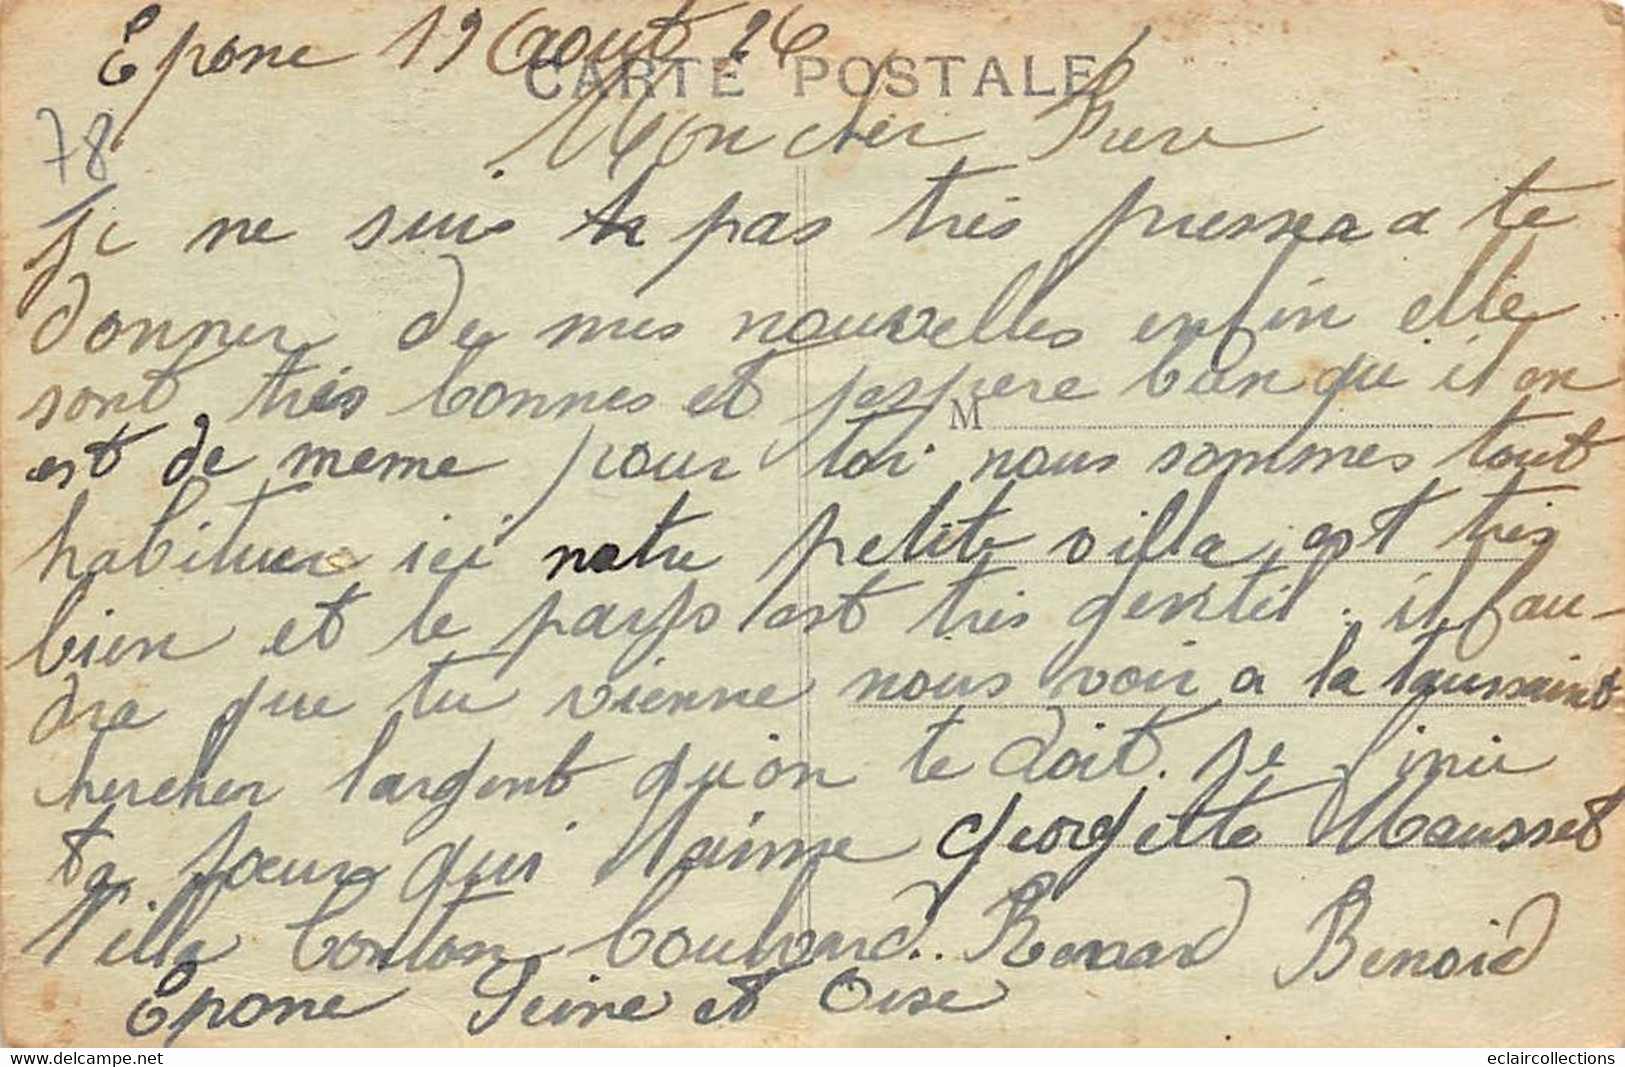 Epone 19 Aout 26
CARTE POSTALE
78
Mon cher Frere
Je ne suis pas très pressea a te
donner de mes nouvelles enfin elle
sont très bonnes et jespere bien qu'il en
M
est de meme pour toi nous sommes tout
habituer ici notre petite villa est très
bien et le pays est très gentil. il fau-
dra que tu vienne nous voir a la toussaint
chercher largent qu'on te doit. je finie
ta soeur qui t'aime Georgette Mousset
Villa Bonton boulvard. Renard Benoid
Epone Seine et Oise
eclaircollections